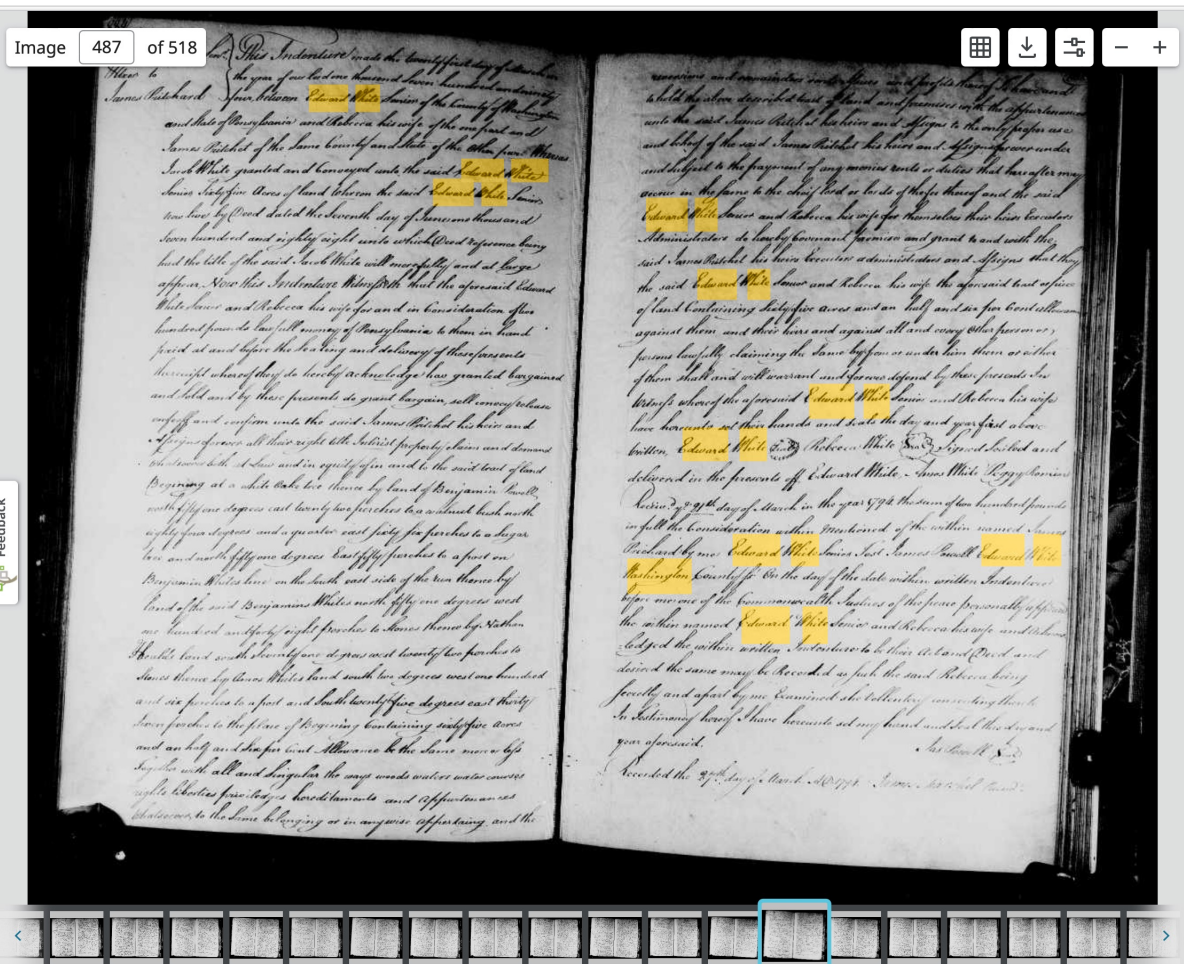 Image 487 of 518
This Indenture made the twenty first day of March in
the year of our Lord one thousand seven hundred and ninety
James Pritchard four between Edward White Senior of the County of Washington
and State of Pensylvania and Rebecca his wife of the one part and
James Pritchet of the Same County and State of the other part Whereas
Jacob White granted and Conveyed unto the said Edward White
Senior Sixty five Acres of land whereon the said Edward White Senior
now lives by Deed dated the Seventh day of June one thousand
Seven hundred and eighty eight unto which Deed reference being
had the title of the said Jacob White will more fully and at Large
appear. Now this Indenture Witnesseth that the aforesaid Edward
White Senior and Rebecca his wife for and in Consideration of two
hundred pounds lawfull money of Pensylvania to them in hand
paid at and before the Sealing and delivery of these presents
the receipt whereof they do hereby acknowledge has granted bargained
and Sold and by these presents do grant bargain, sell convey release
enfeoff and confirm unto the said James Pritchet his heirs and
Assigns forever all their right title Interist property claim and demand
whatsoever both at Law and in equity of in and to the said tract of land
Begining at a white Oake tree thence by land of Benjamin Powell
north fifty one degrees east twenty two perches to a walnut bush north
eighty four degrees and a quarter east sixty six perches to a sugar
tree and north fifty one degrees East fifty perches to a post on
Benjamin Whites line on the South east side of the run thence by
land of the said Benjamins Whites north fifty one degrees west
one hundred and forty eight perches to Stones thence by Nathan
Healds land south seventy one degrees west twenty two perches to
Stones thence by Amos Whites land south two degrees west one hundred
and six perches to a post and South twenty five degrees east thirty
seven perches to the place of Begining Containing sixty five Acres
and an half and Six per Cent Allowance be the Same more or less
Together with all and Singular the ways woods waters water courses
rights liberties priviledges hereditaments and Appurtenances
Whatsoever, to the Same belonging or in anywise appertaing and the
reversions and remainders rents issues and profits thereof To have and
to hold the above described tract of land and premises with the appurtenances
unto the said James Pritchet his heirs and Assigns to the only proper use
and behoof of the said James Pritchet his heirs and Assigns forever under
and subject to the payment of any monies rents or duties that hereafter may
accrue in the same to the chief lord or lords of the fee thereof and the said
Edward White Senior and Rebecca his wife for themselves their heirs Executors
Administrators do hereby Covenant promise and grant to and with the
said James Pritchet his heirs Executors administrators and Assigns that they
the said Edward White Senior and Rebecca his wife the aforesaid tract or piece
of land Containing Sixty five Acres and an half and six per Cent allowance
against them and their heirs and against all and every Other person or
persons lawfully claiming the Same by from or under him them or either
of them shall and will warrant and forever defend by these presents In
Witness whereof the aforesaid Edward White Senior and Rebecca his wife
have hereunto set their hands and Seals the day and year first above
written, Edward White Seal Rebecca White Seal Signed Sealed and
delivered in the presents off Edward White, Amos White Peggy
day of March in the year 1794 the sum of two hundred pounds
in full the Consideration within mentioned of the within named James
Prichard by me Edward White Senior Test James Powell Edward White
Washington County Ss On the day of the date within written Indenture
before me one of the Commonwealth Justices of the peace personally appeared
the within named Edward White Senior and Rebecca his wife and Acknow
-ledged the within written Indenture to be their Act and Deed and
desired the same may be Recorded as such the said Rebecca being
secretly and apart by me Examined
In Testimony hereof I have hereunto set my hand and Seal the day and
year aforesaid. Jas Powell Seal
Recorded the 27th day of March AD 1794
Feedback